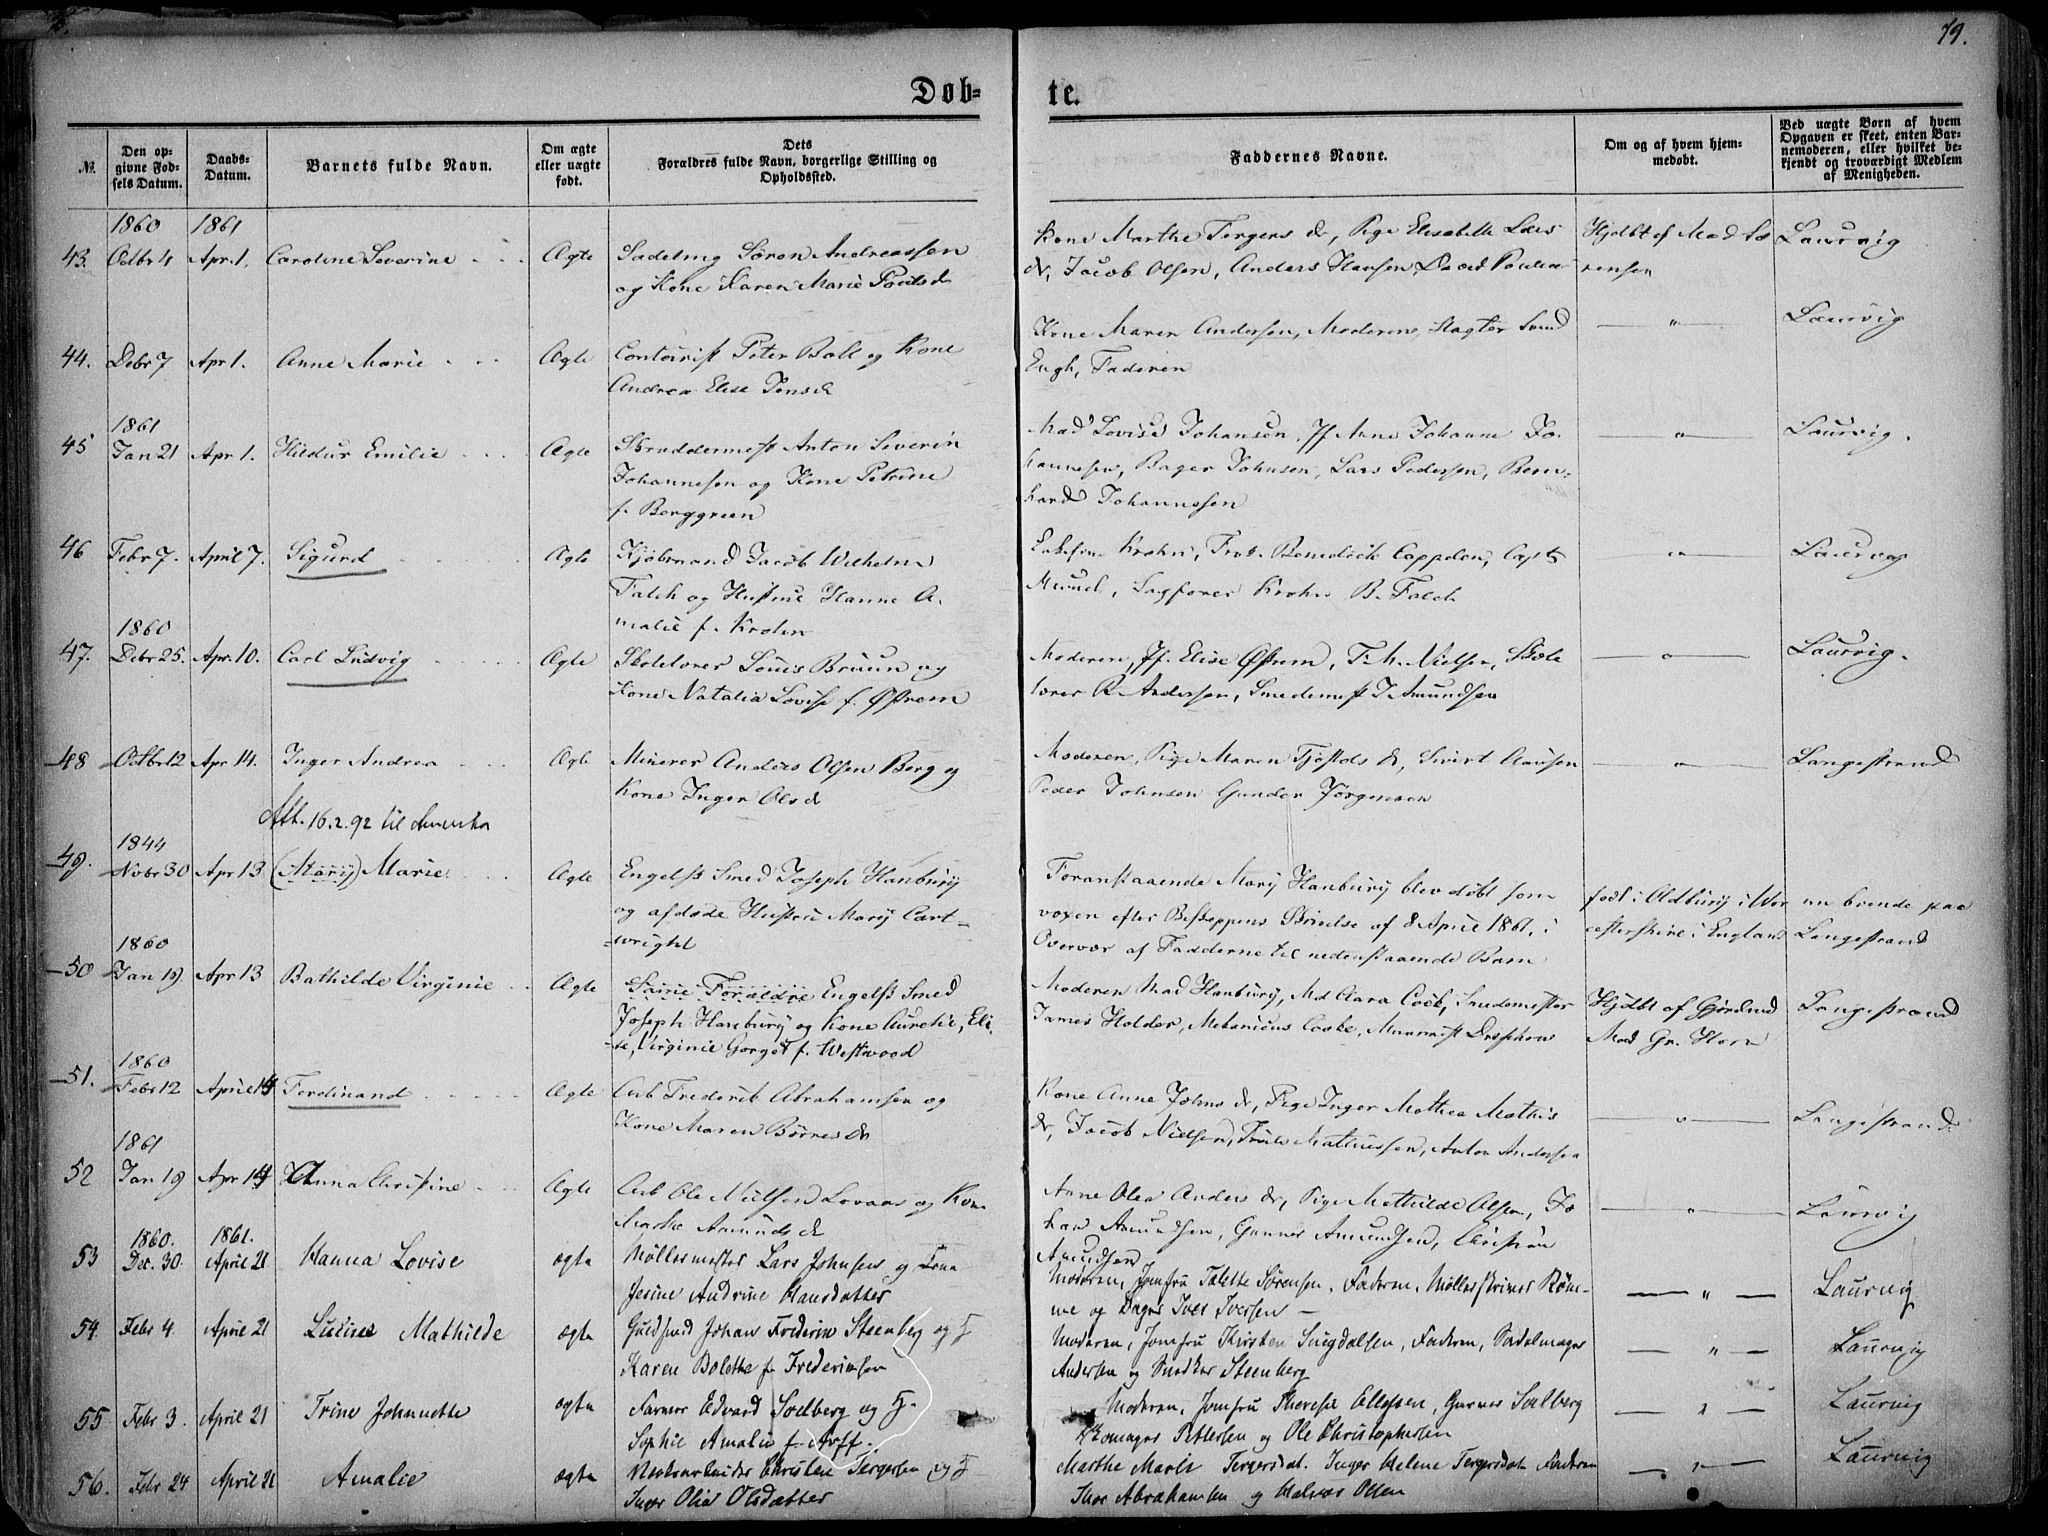 79.
Døb-
te.
№
Den op-
givne Fød-
sels Datum.
Daabs-
Datum.
Barnets fulde Navn.
Om ægte
eller uægte
født.
Dets
Forældres fulde Navn, borgerlige Stilling og
Opholdssted.
Faddernes Navne.
Om og af hvem hjem-
medøbt.
Ved uægte Børn af hvem
Opgaven er skeet, enten Bar-
nemoderen, eller hvilket be-
kjendt og troværdigt Medlem
af Menigheden.
1860 1861
43. Octbr 4 Apr. 1. Caroline Severine Ægte Sadelmg Søren Andreassen
og Kone Karen Marie Pouls d
Kone Marthe Jørgens dr, Pige Elisabeth Lars
dr, Jacob Olsen, Anders Hansen
Hjdbt af Mad
Laurvig
44. Debr 7 Apr 1. Anne Marie Ægte Contorist Peter Boll og Kone
Andrea Elise Jens d
Kone Maren Andersen, Moderen, Slagter
Engh, Faderen
— " — Laurvig
1861
45 Jan 21 Apr 1. Hildur Emilie Ægte Skræddermest Anton Severin
Johannesen og Kone Petrine
f. Borggreen
Mad Lovise Johansen, Jf Anne Johanne Jo-
hannesen, Bager Johnsen, Lars Pedersen, Bern-
hard Johannssen
— " — Laurvig.
46 Febr 7. April 7. Sigurd Ægte Kjøbmand Jacob Wilhelm
Falch og Hustru Hanne A-
malie f. Krohn
Krohn, Frk. Benedicte Coppelen, Capt
Sagfører Krohn B. Falch
— " — Laurvig
1860
47. Debr 25. Apr. 10. Carl Ludvig Ægte Skolelærer Louis Bruun og
Kone Natalia Lovise f. Østrem
Moderen, Jf. Elise Østrem, F. M. Nielsen, Skole
lærer R. Andersen, Smedemest J Amundsen
— " — Laurvig.
48 Octbr 12 Apr 14. Inger Andrea Ægte Minerer Anders Olsen Berg og
Kone Inger Ols d
Moderen, Pige Maren dr, Sivert
Peder Johnsen Gunder Jørgensen
— " — Langestrand
Att. 16.2.92 til Amerika
1844
49. Nobr 30 Apr 13 (Mary) Marie Ægte Engelsk Smed Joseph Hanbury
og afdøde Hustru Mary Cart-
wright
Foranstaaende Mary Hanbury blev døbt som
voxen efter Biskoppens Skrivelse af 8 April 1861, i
Overvær af Fadderne til nedenstaaende Barn
født i Oldbury i Wor
cestershire i England
Langestrand
1860
50 Jan 19 Apr 13 Bathilde Virginie Ægte Samme Forældre Engelsk Smed
Joseph Hanbury og Kone Aurelie, Eli-
se, Virginie Gorget f. Westwood
Moderen Mad Hanbury, Md Clara Cock, Smedemester
James Holder, Mekanicus Cooke,
Hjdbt af
Mad Gr. Horn
Langestrand
1860
51. Febr 12 April 14 Ferdinand Ægte Arb Frederik Abrahamsen og
Kone Maren Børres dr
Kone Anne Johns dr, Pige Inger Mathea Mathis
dr, Jacob Nielsen, Mathiessen, Anton Andersen
— " — Langestrand
1861
52 Jan 19 Apr 14 Anna Christine Ægte Arb Ole Nielsen Lovaas og Kone
Marthe Amunds d
Anne Olea Anders dr, Pige Mathilde Olsen, Jo
han Amundsen, Gunner Amundsen, Christian
Amundsen
— " — Laurvig
1860. 1861.
53 Dec. 30. April 21 Hanna Lovise ægte Møllermester Lars Johnsen og Kone
Jesine Andrine Hansdatter
Moderen, Jomfru Talette Sørensen, Faderen, Møllerskriver Røn-
ne og Bager Iver Iversen —
— " — Laurvig
54. Febr 4. April 21 Mathilde ægte Johan Frederik Steenberg og H
Karen Bolethe f. Frederiksen
Moderen, Jomfru Kirsten Faderen, Sadelmager
Andersen og Snedker Steenberg
— " — Laurvig
55 Febr 3. April 21 Trine Johnette ægte Farver Edvard Soelberg og H.
Sophie Amalie f. Arff.
Moderen, Jomfru Therese Ellefsen, Garver Soelberg
Skomager Pettersen og Ole Christophersen
— " — Laurvig
56. Febr 24 April 21 Amalie ægte Christen Jørgersen og H
Inger Olia Olsdatter
Marthe Marie Jørgersdat. Inger Helene Jørgersdat. Faderen
Thor Abrahamsen og Halvor Olsen
— " — Laurvig